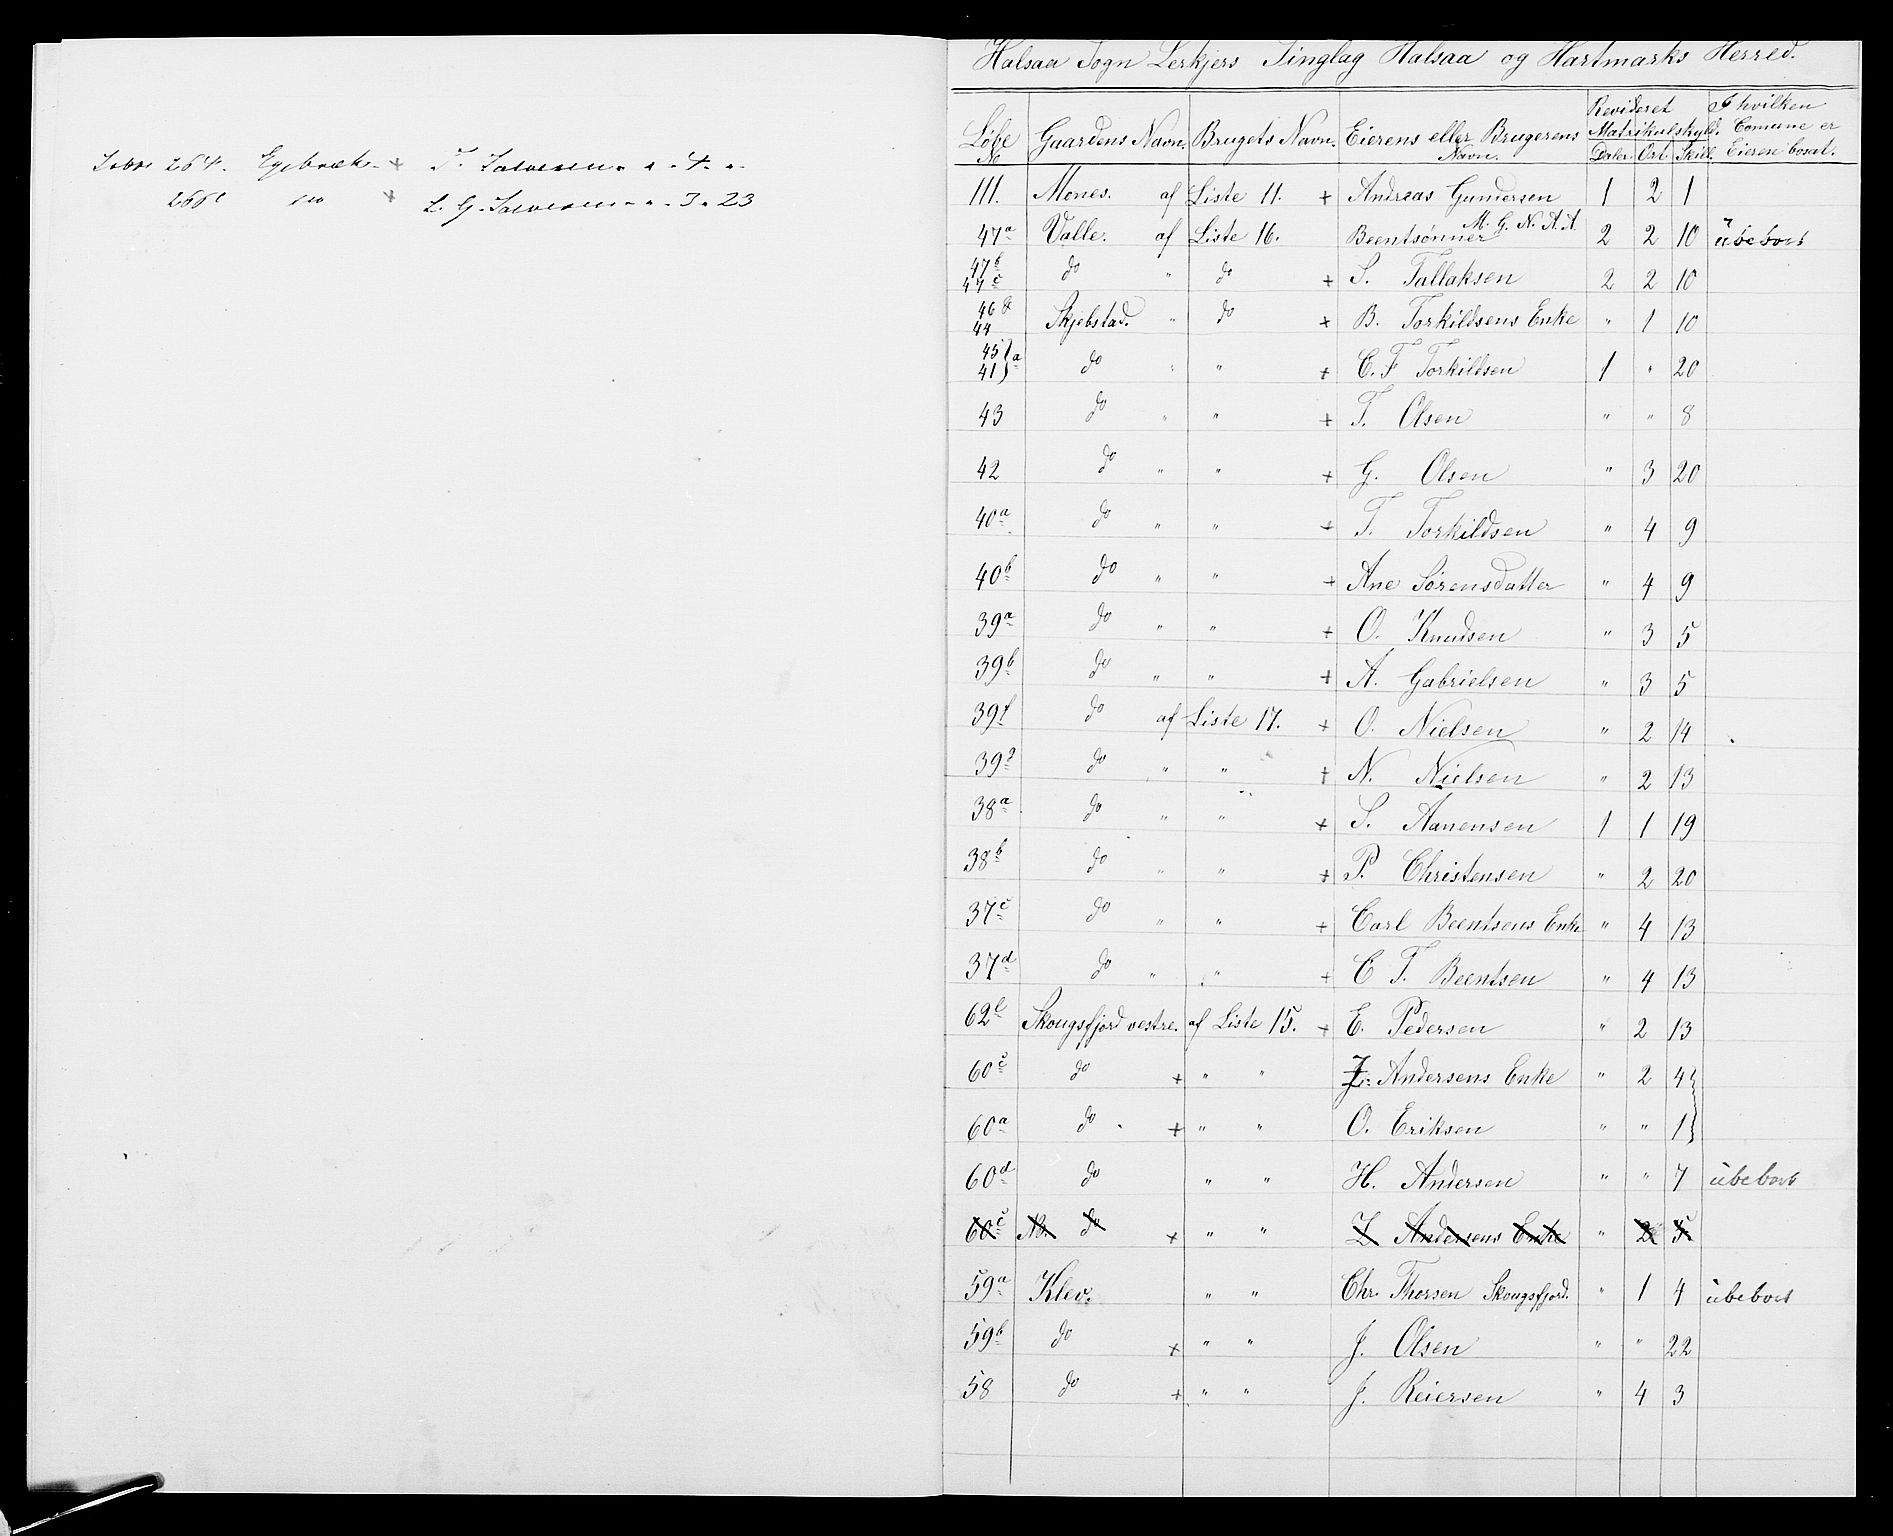 264. Egebræk + T. Salvesen " " 4 " "
266c do + L. G. Salvesen " " 3 " 23
Halsaa Sogn Lerkjers Tinglag Halsaa og Hartmarks Herred.
Løbe No Gaardens Navn. Brugets Navn. Eierens eller Brugerens Navn. Revideret Matrikulskyld. Daler Ort Skill. I hvilken Comune er Eieren bosat.
111. Mones. af Liste 11. + Andreas Gundersen 1 2 1
47a Valle. af Liste 16. Beentsønner M. G. N. A. A. 2 2 10 ubeboet
47b 47c do " do + S. Tallaksen 2 2 10
46 & 44 Skjebstad. " do + B. Torkildsens Enke " 1 10
45 41 } a do " " + C. F Torkildsen 1 " 20
43 do " " + T. Olsen " " 8
42 do " " + G. Olsen " 3 20
40a do " " + T. Torkildsen " 4 9
40b do " " + Ane Sørensdatter " 4 9
39a do " " + O. Knudsen " 3 5
39b do " " + A. Gabrielsen " 3 5
39f do af Liste 17. + O. Nielsen " 2 14
39g do " " + N. Nielsen " 2 13
38a do " " + S. Aanensen 1 1 19
38b do " " + P. Christensen " 2 20
37c do " " + Carl Beentsens Enke " 4 13
37d do " " + C T. Beentsen " 4 13
62e Skougsfjord vestre. af Liste 15. + E. Pedersen " 2 13
60c do + " " Z. Andersens Enke " 2 4 }
60a do + " " O. Eriksen " " 1 }
60d do " " H. Andersen " " 7 ubeboet
60c No. do + " " Z Andersens Enke " 2 5
59a Klev. " " Chr. Thorsen Skougsfjord. " 1 4 ubeboet
59b do + " " J. Olsen " " 22
58 do + " " J. Reiersen " 4 3